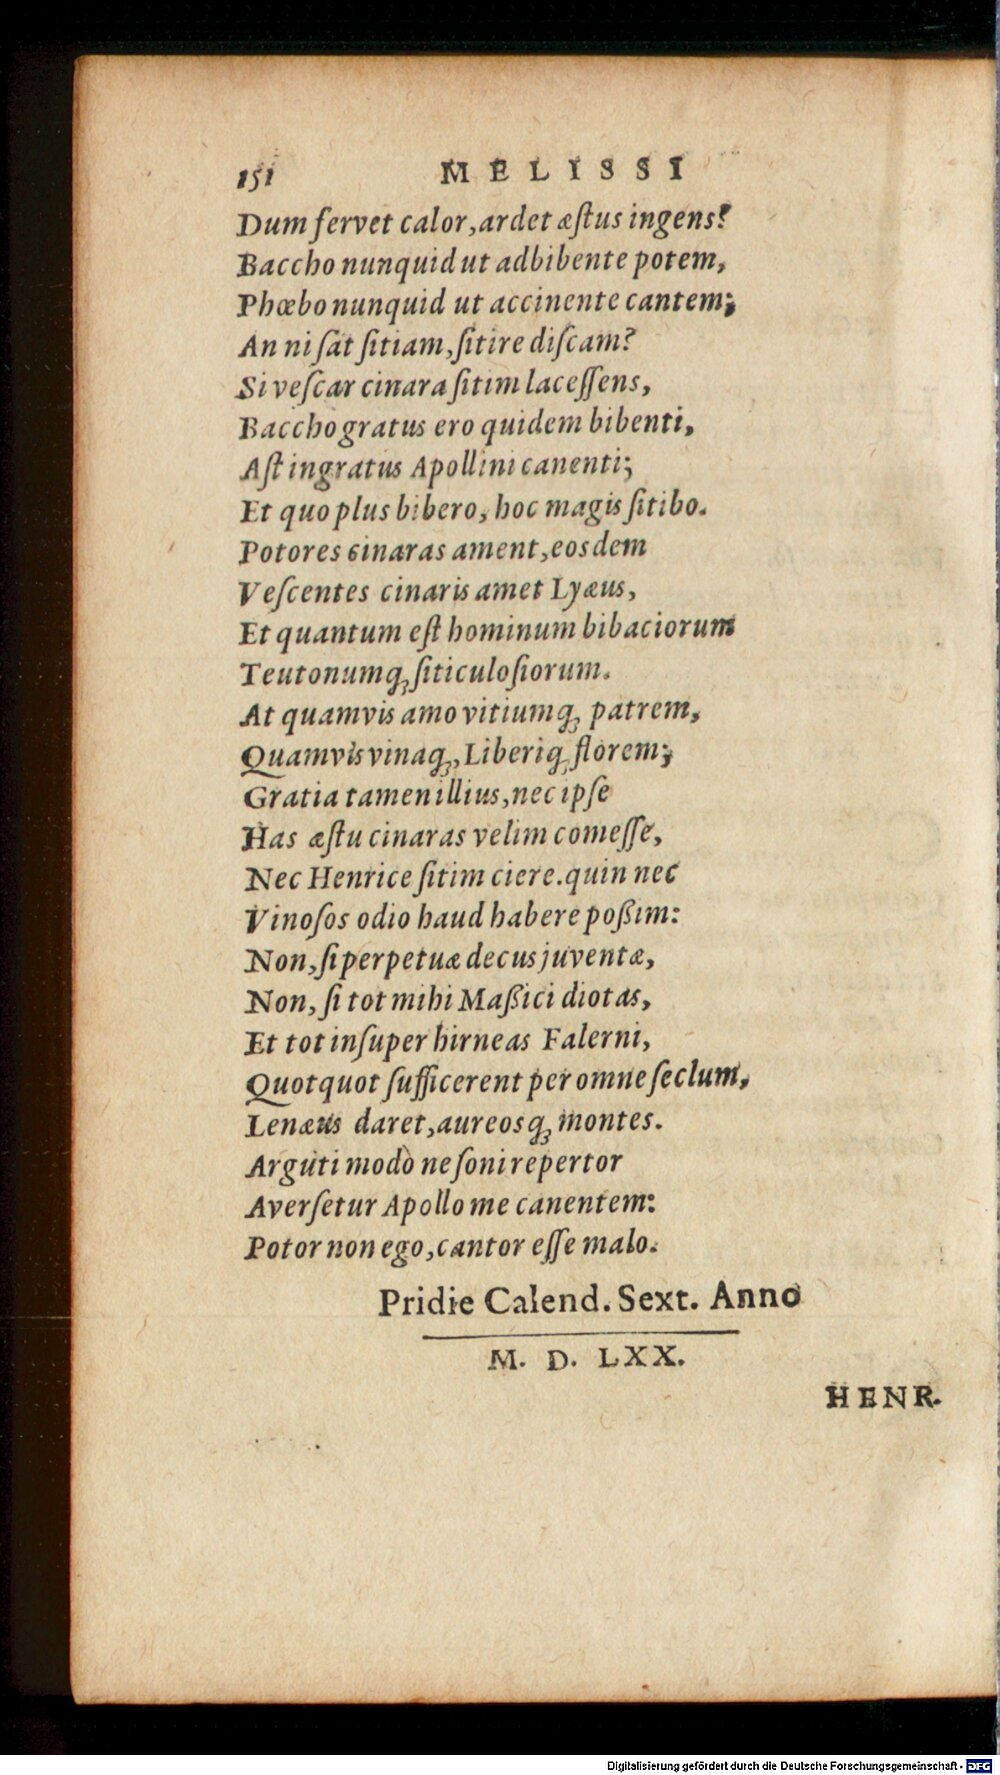 151 MELISSI
Dum fervet calor, ardet æſtus ingens?
Baccho nunquid ut adbibente potem,
Phœbo nunquid ut accinente cantem;
An ni ſat ſitiam, ſitire diſcam?
Si veſcar cinara ſitim laceſſens,
Baccho gratus ero quidem bibenti,
Aſt ingratus Apollini canenti;
Et quo plus bibero, hoc magis ſitibo.
Potores cinaras ament, eosdem
Veſcentes cinaris amet Lyæus,
Et quantum eſt hominum bibaciorum
Teutonumq́; ſiticuloſiorum.
At quamvis amo vitiumq́; patrem,
Quamvis vinaq́;, Liberiq́; florem;
Gratia tamen illius, nec ipſe
Has æſtu cinaras velim comeſſe,
Nec Henrice ſitim ciere. quin nec
Vinoſos odio haud habere poßim:
Non, ſi perpetuæ decus juventæ,
Non, ſi tot mihi Maßici diotas,
Et tot inſuper hirneas Falerni,
Quotquot ſufficerent per omne ſeclum,
Lenæus daret, aureosq́; montes.
Arguti modò ne ſoni repertor
Averſetur Apollo me canentem:
Potor non ego, cantor eſſe malo.
Pridie Calend. Sext. Anno
M. D. LXX.
HENR.
Digitalisierung gefördert durch die Deutsche Forschungsgemeinschaft - DFG